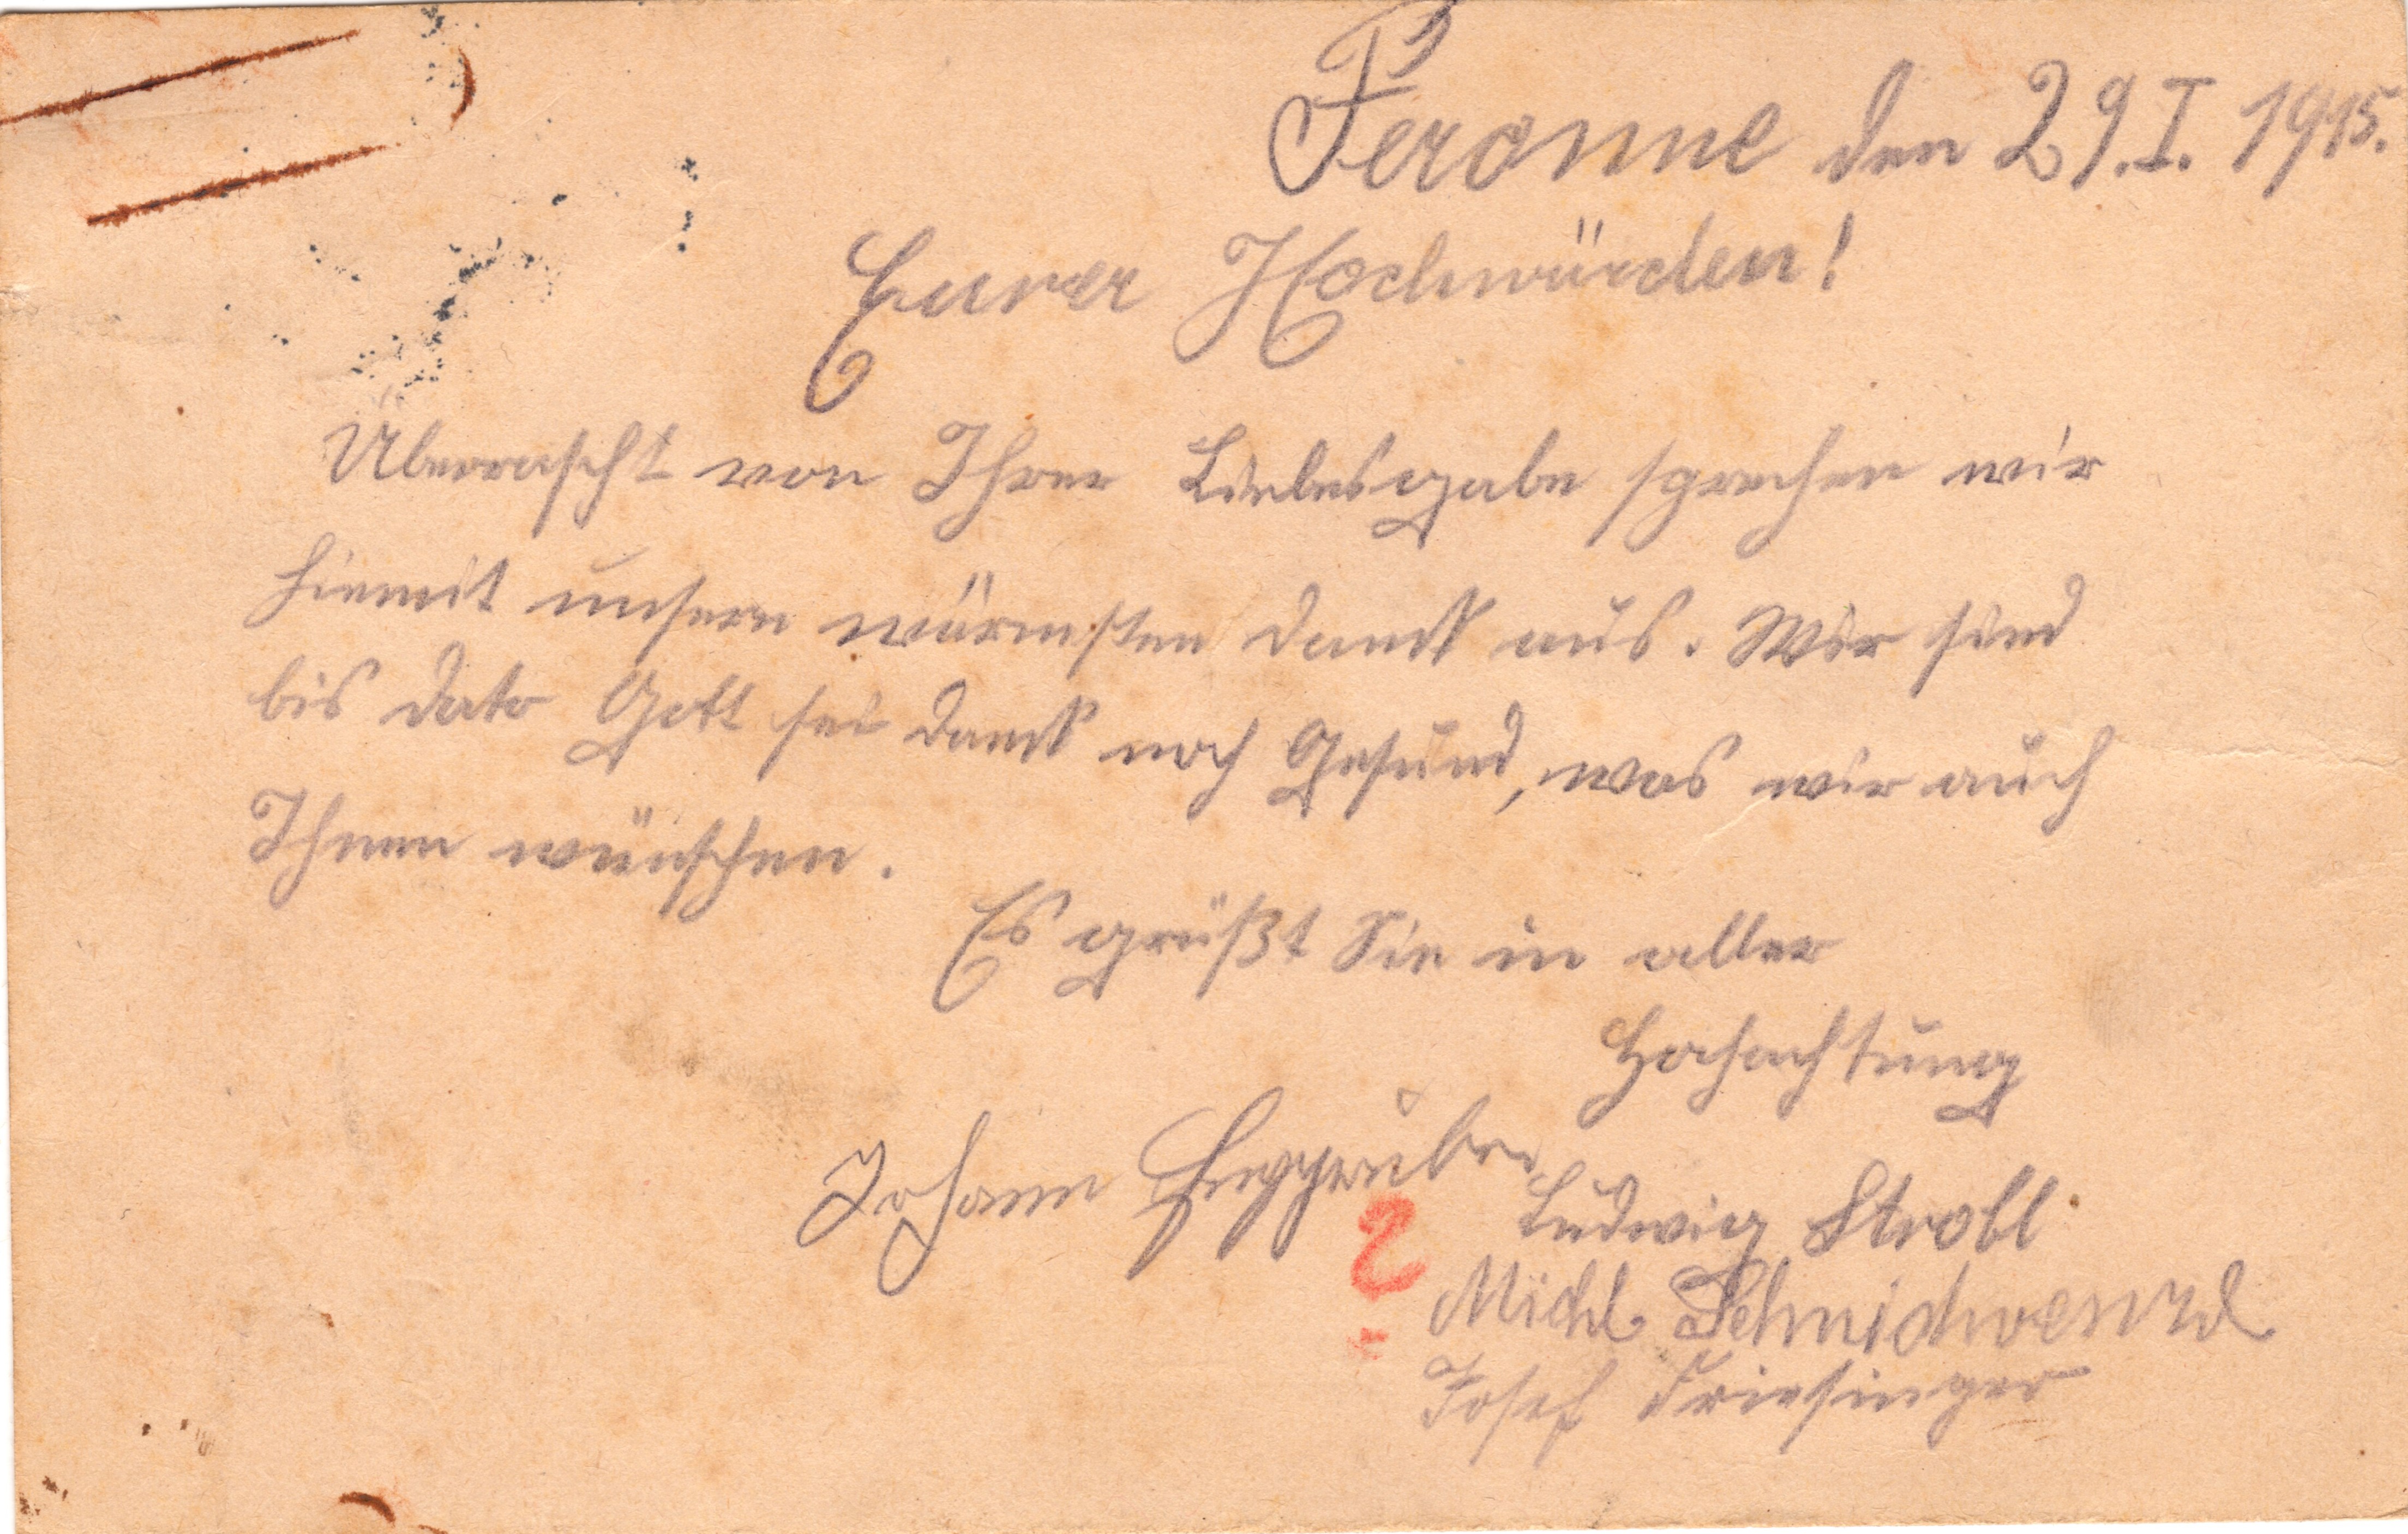 Peronne den 29.I.1915.
Eurer Hochwürden!
Überrascht von Ihrer Liebesgabe sprechen wir
hiemit unsern wärmsten Dank aus. Wir sind
bis dato Gott sei Dank noch Gesund, was wir auch
Ihnen wünschen.
Es grüßt Sie in aller
Hochachtung
Johann
Ludwig Strobl
Michl
Josef Friesinger
2